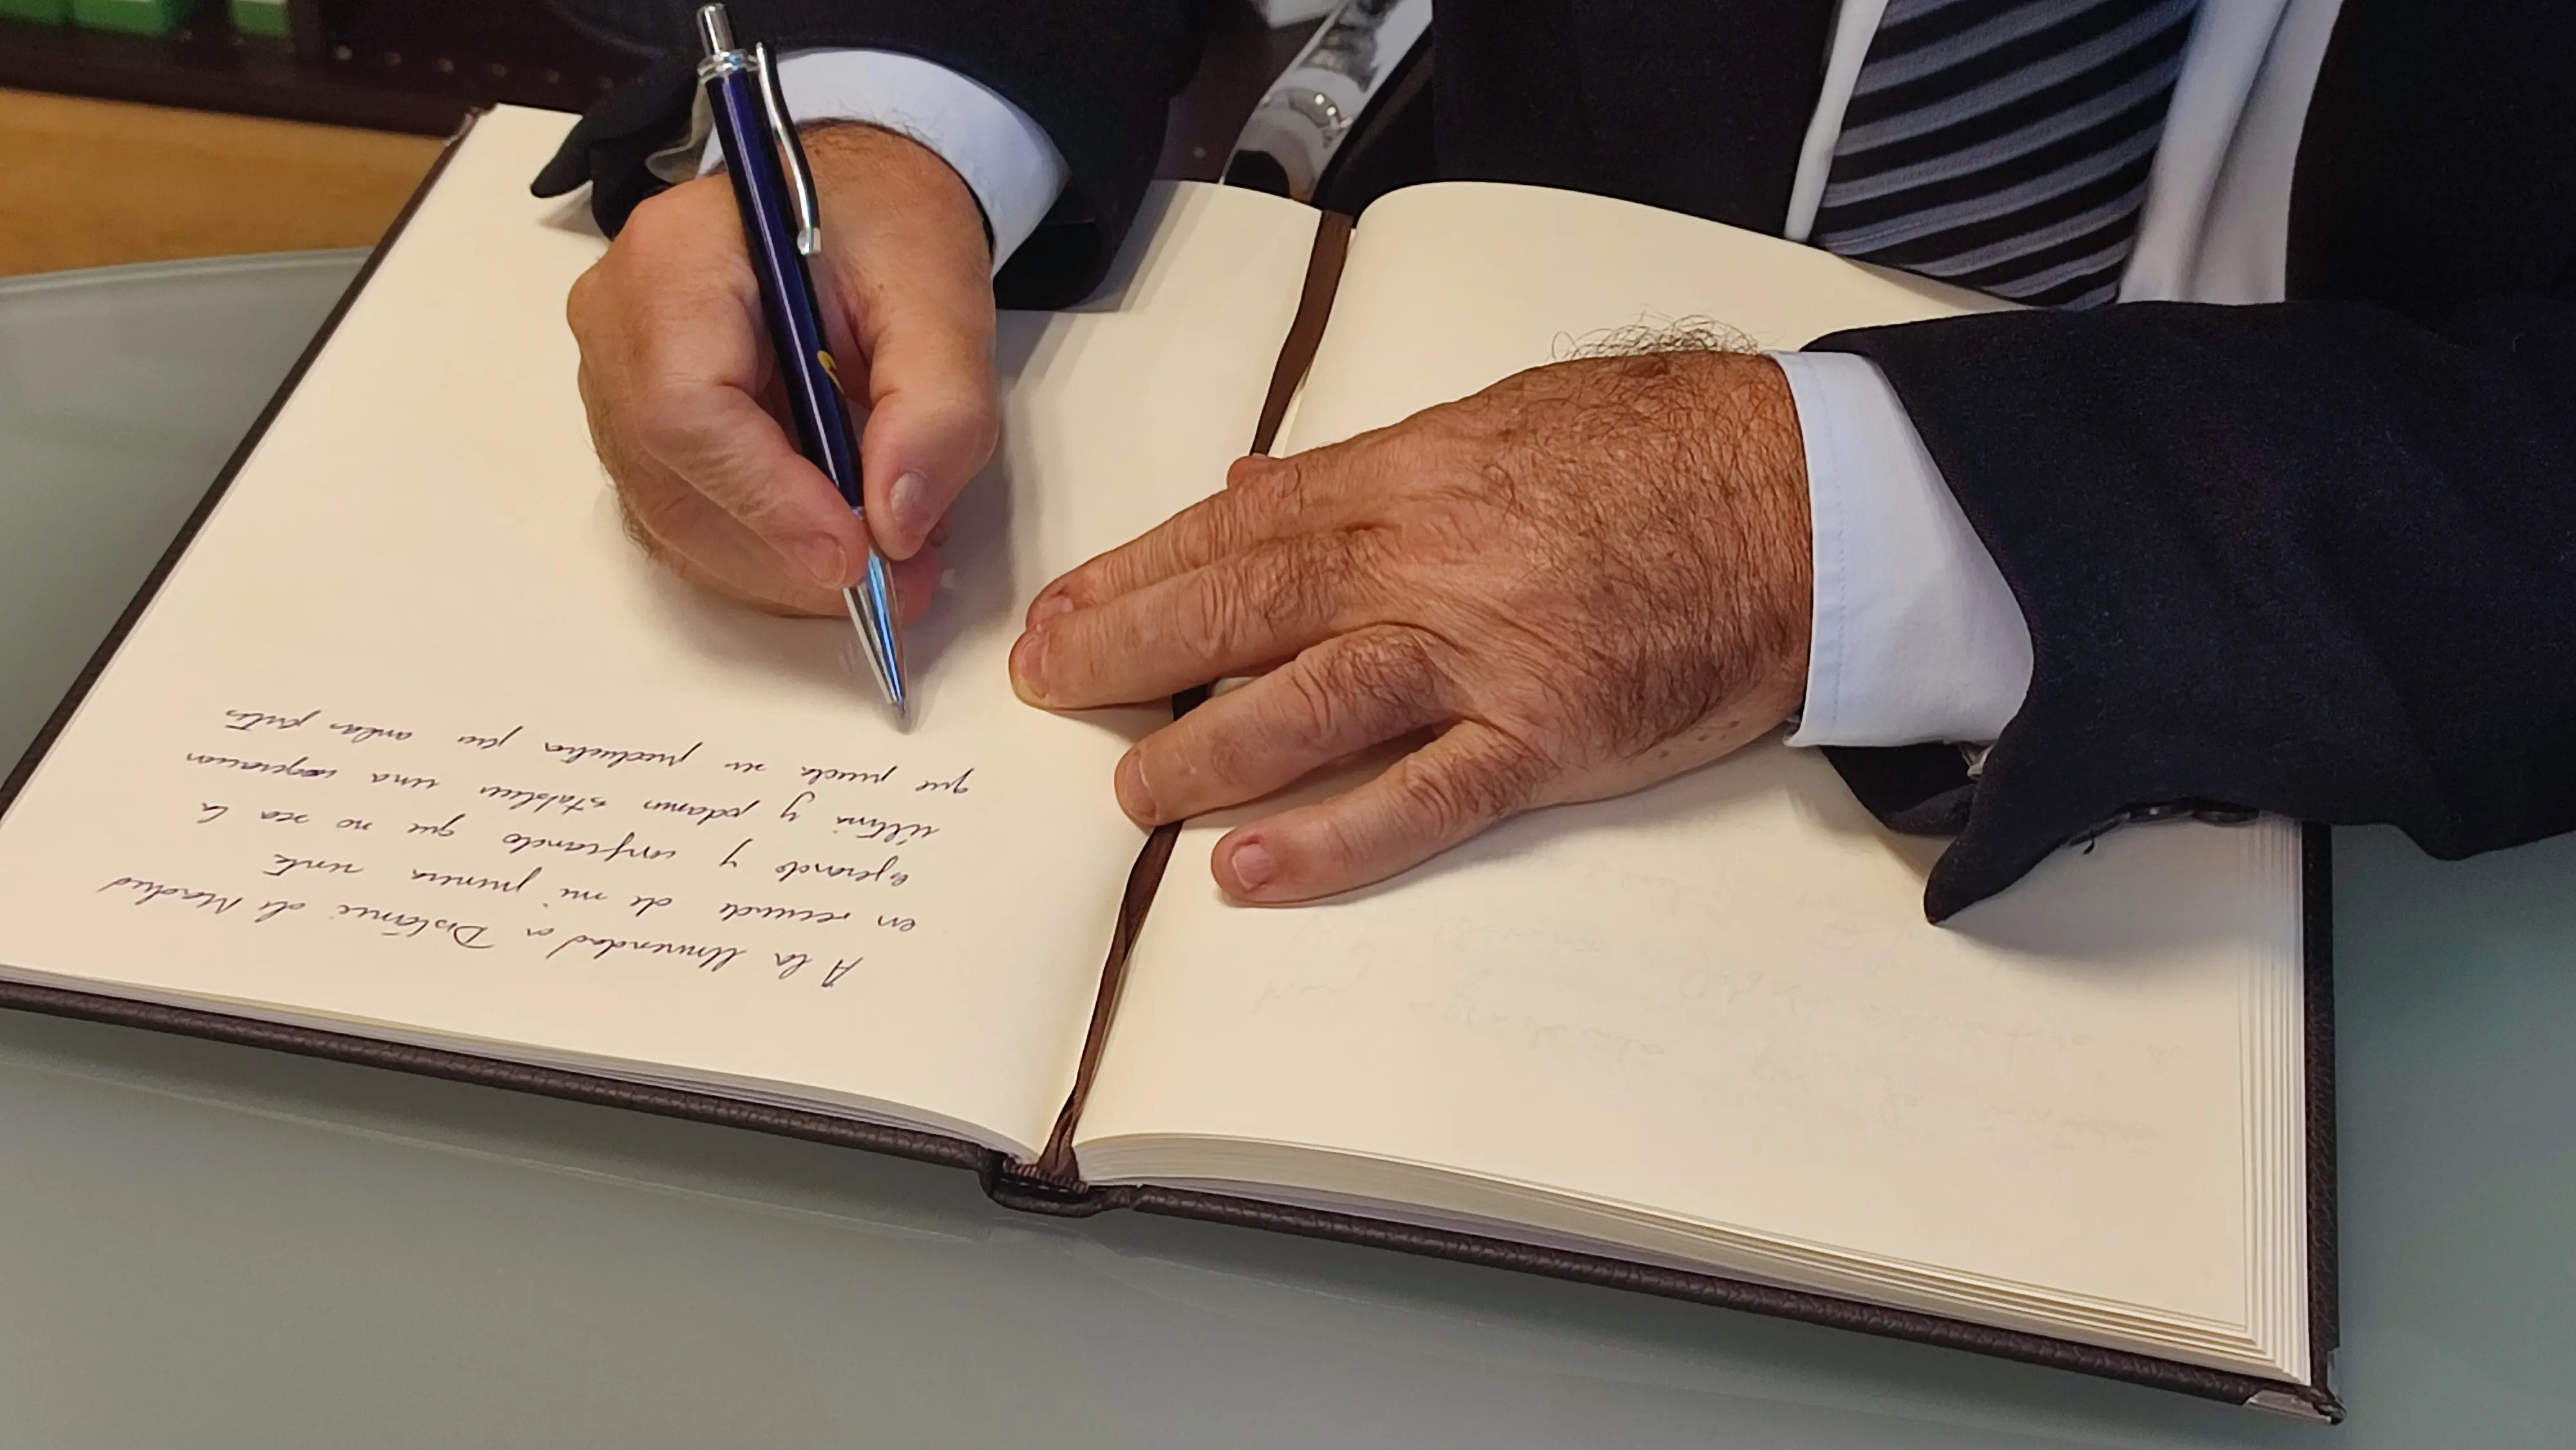 A la Universidad a Distancia de Madrid
en recuerdo de mi primera visita
esperando y confiando que no sea la
última y podamos establecer una cooperación
que pueda ser productiva para ambas partes